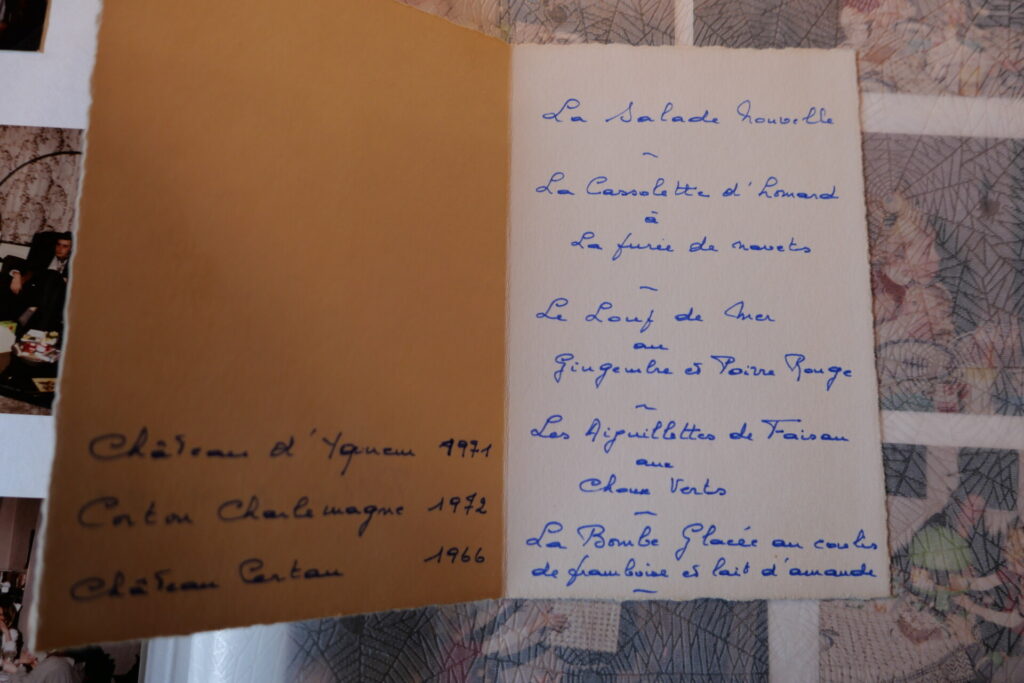 Château d'Yquem 1971
Corton Charlemagne 1972
Château Certan 1966
La Salade Nouvelle
~
La Cassolette d'homard
à
La purée de navets
~
Le Loup de Mer
au
Gingembre et Poivre Rouge
~
Les Aiguillettes de Faisan
aux
Choux Verts
~
La Bombe Glacée au coulis
de framboise et lait d'amande
~